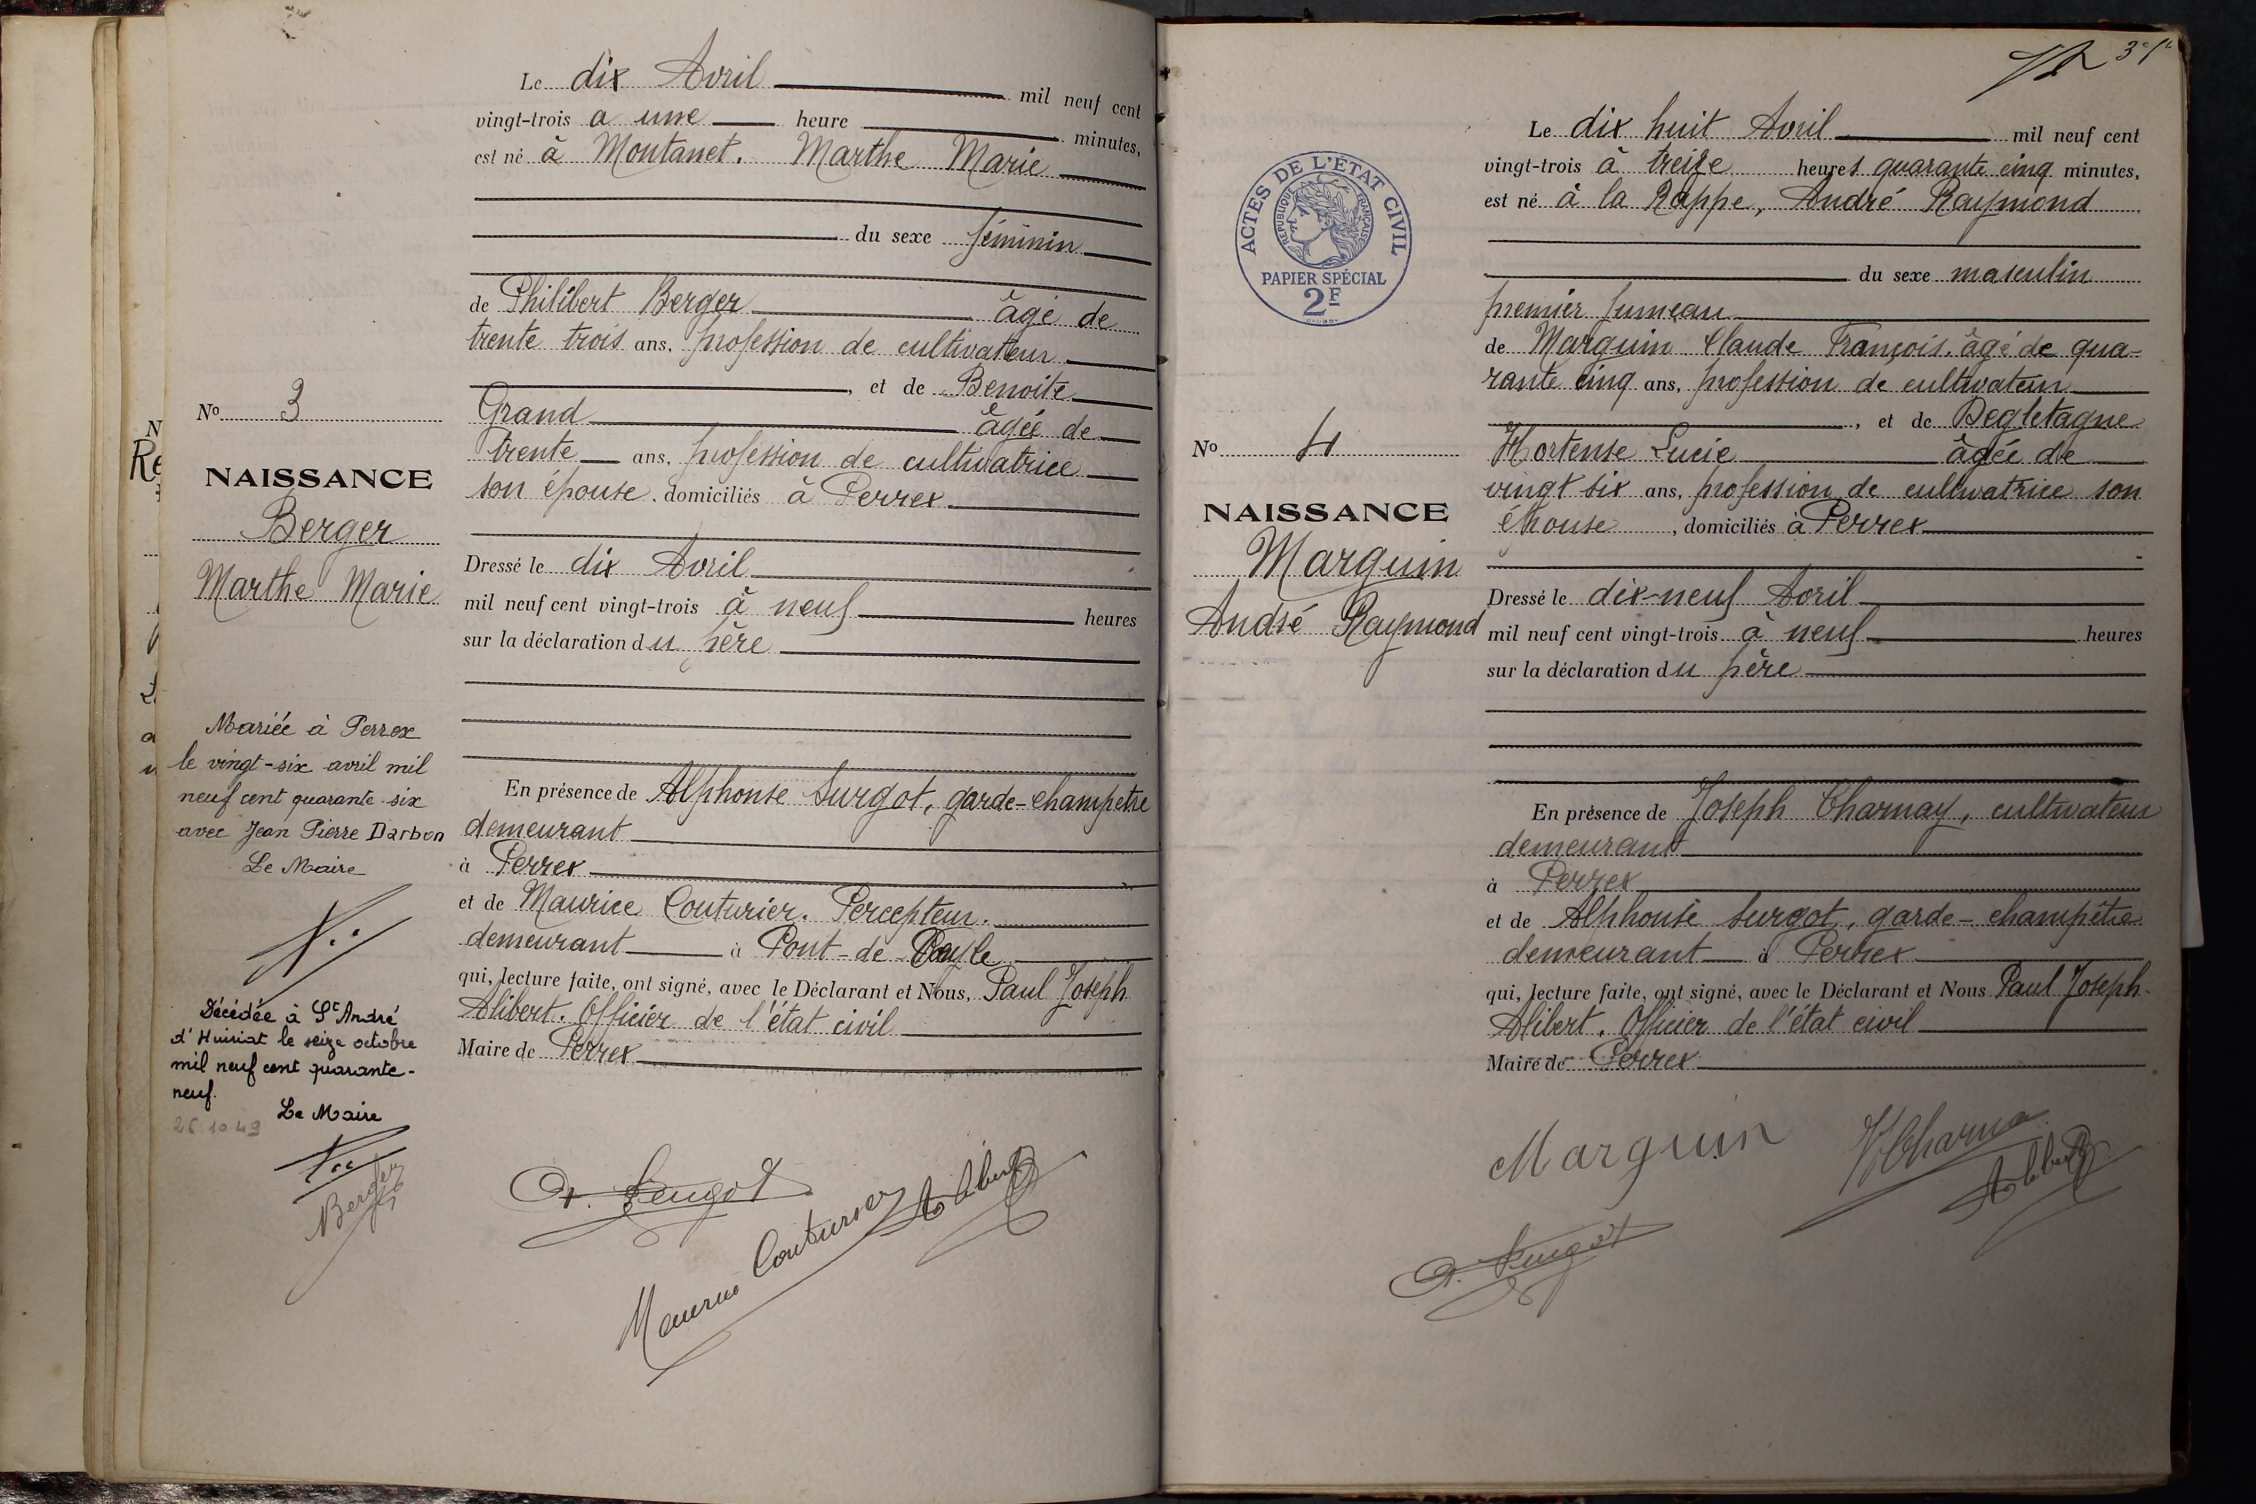 Le dix Avril mil neuf cent
vingt-trois a une heure minutes,
est né à Montanet. Marthe Marie
du sexe féminin
de Philibert Berger âgé de
trente trois ans, profession de cultivateur
, et de Benoite
Grand âgée de
trente ans, profession de cultivatrice
son épouse, domiciliés à Perrex
Dressé le dix Avril
mil neuf cent vingt-trois à neuf heures
sur la déclaration du père
En présence de Alphonse Surgot, garde-champetre
demeurant
à Perrex
et de Maurice Couturier. Percepteur.
demeurant à Pont-de-Veyle
qui, lecture faite, ont signé, avec le Déclarant et Nous, Paul Joseph
Alibert. Officier de l'état civil
Maire de Perrex
No 3
NAISSANCE
Berger
Marthe Marie
Mariée à Perrex
le vingt-six avril mil
neuf cent quarante-six
avec Jean Pierre Darbon
Le Maire
Décédée à St André
d'Huiriat le seize octobre
mil neuf cent quarante-
neuf.
Le Maire
26.10.49
Berger
A. Surgot
Maurice Couturier
Alibert
3
ACTES DE L'ÉTAT CIVIL
RÉPUBLIQUE FRANÇAISE
PAPIER SPÉCIAL
2F
No 4
NAISSANCE
Marguin
André Raymond
Le dix huit Avril mil neuf cent
vingt-trois à treize heures quarante cinq minutes,
est né à la Rappe, André Raymond
du sexe masculin
premier jumeau
de Marguin Claude François. âgé de qua-
rante cinq ans, profession de cultivateur
, et de Degletagne
Hortense Lucie âgée de
vingt six ans, profession de cultivatrice son
épouse, domiciliés à Perrex
Dressé le dix-neuf Avril
mil neuf cent vingt-trois à neuf heures
sur la déclaration du père
En présence de Joseph Charnay, cultivateur
demeurant
à Perrex
et de Alphonse Surgot, garde-champêtre
demeurant à Perrex
qui, lecture faite, ont signé, avec le Déclarant et Nous Paul Joseph
Alibert. Officier de l'état civil
Maire de Perrex
Marguin
Charna
Alibert
A. Surgot